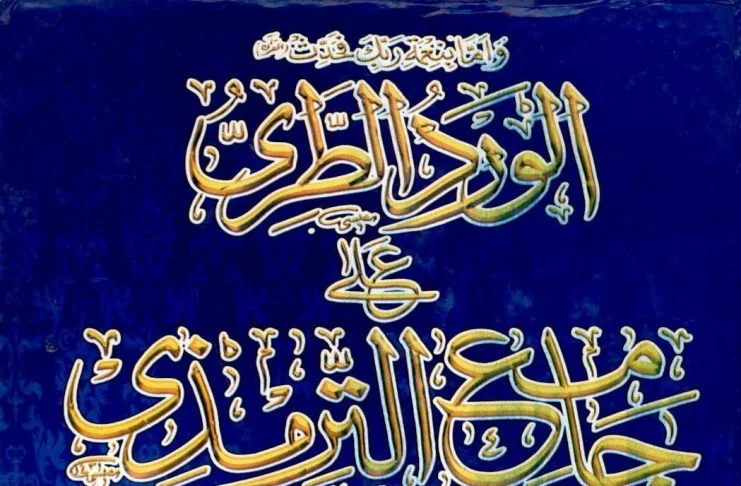 وَاَمَّا بِنِعْمَةِ رَبِّكَ فَحَدِّثْ
الوَرَدُ الطَّرِیُّ
عَلٰی
جَامِع التِّرمِذِی